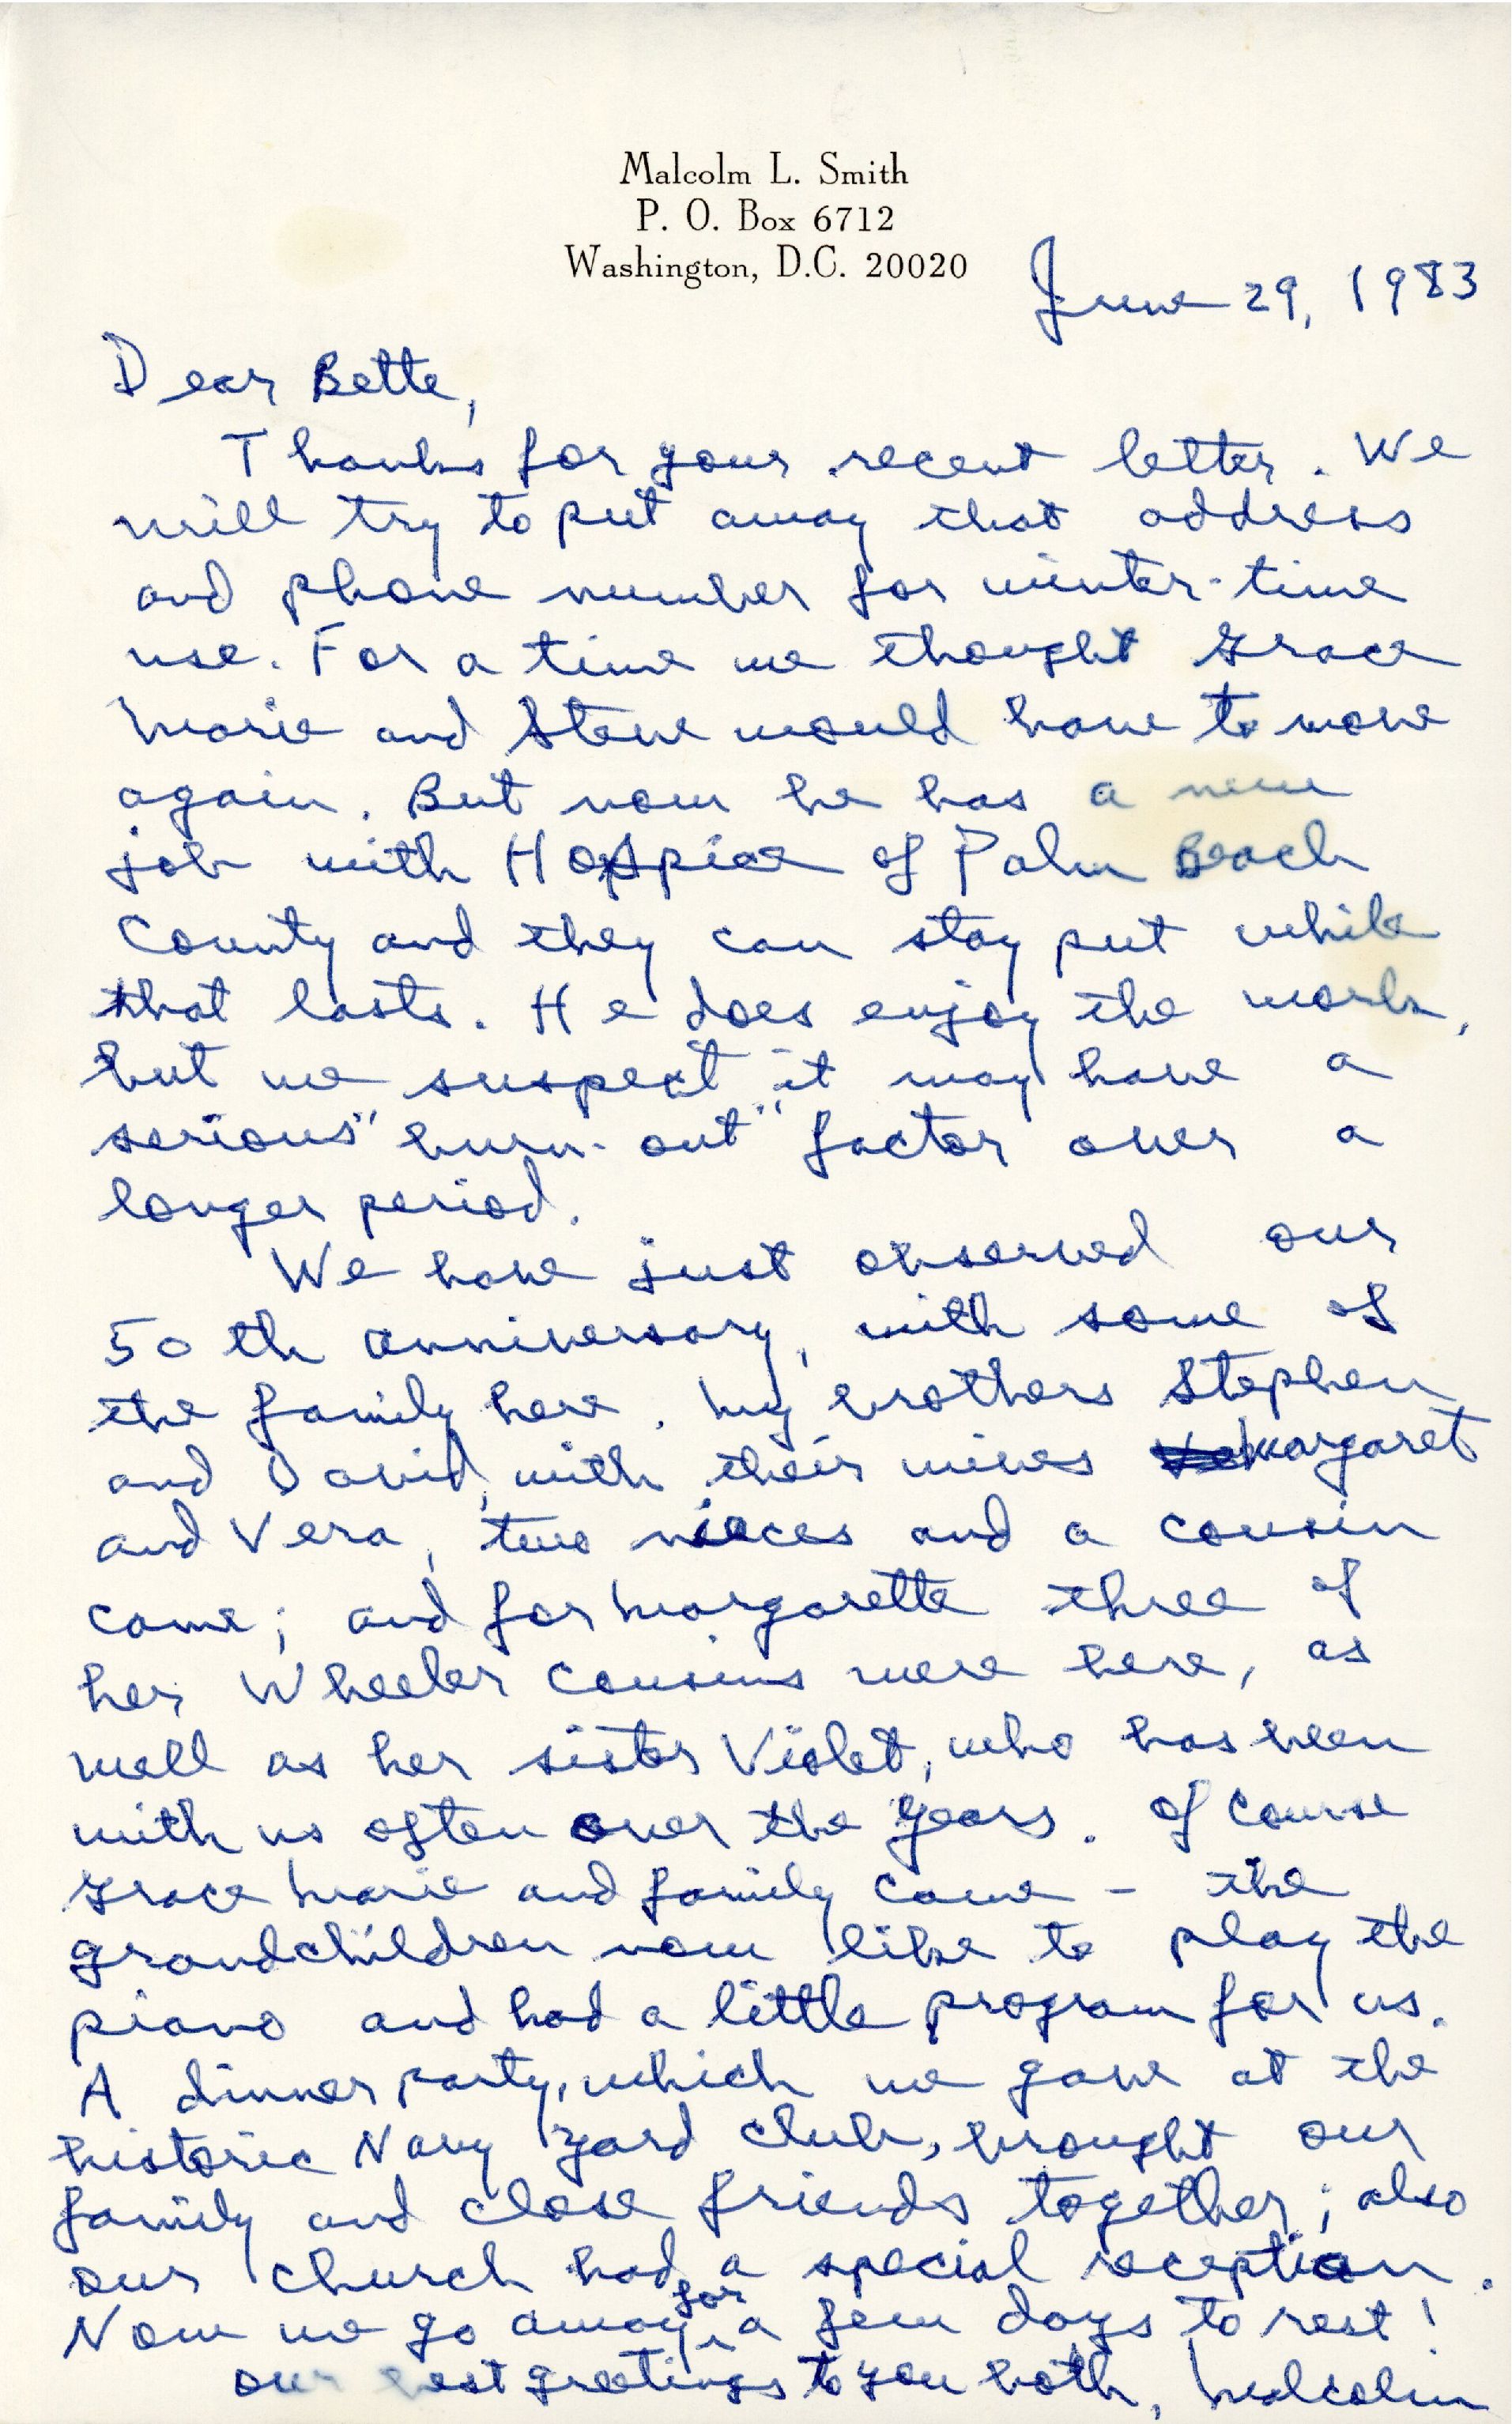 Malcolm L. Smith
P. O. Box 6712
Washington, D.C. 20020
June 29, 1983
Dear Bette,
Thanks for your recent letter. We
will try to put away that address
and phone number for winter-time
use. For a time we thought Grace
Marie and Steve would have to move
again. But now he has a new
job with Hospice of Palm Beach
County and they can stay put while
that lasts. He does enjoy the work,
but we suspect it may have a
serious "burn-out" factor over a
longer period.
We have just observed our
50th anniversary, with some of
the family here. My brothers Stephen
and David, with their wives Margaret
and Vera, two nieces and a cousin
came; and for Margarette three of
her Wheeler cousins were here, as
well as her sister Violet, who has been
with us often over the years. Of course
Grace Marie and family came - the
grandchildren now like to play the
piano and had a little program for us.
A dinner party, which we gave at the
historic Navy Yard Club, brought our
family and close friends together; also
our church had a special reception.
Now we go away for a few days to rest!
Our best greetings to you both, Malcolm